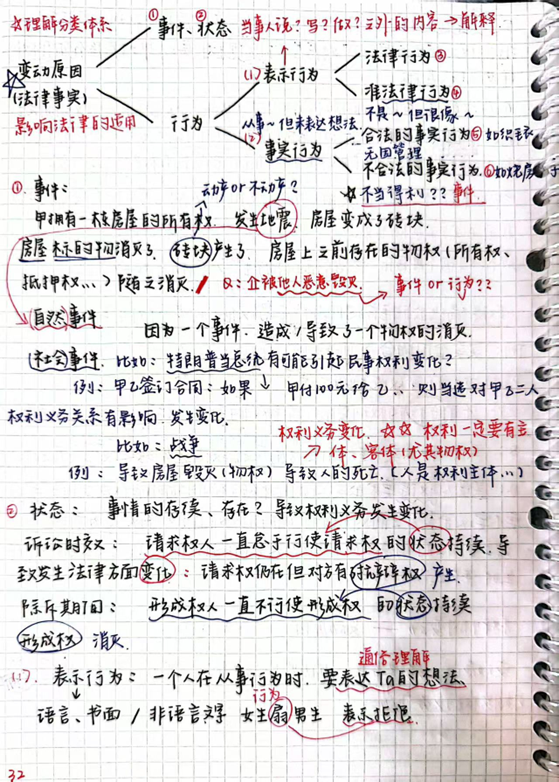 ☆理解分类体系
① ②
事件、状态
当事人说?写?做?之外的内容 → 解释
变动原因
(法律事实)
影响法律的适用
行为
(1) 表示行为
法律行为③
准法律行为④
不是~但很像~
从事~但未表达想法
(2) 事实行为
合法的事实行为⑤ 如织毛衣
无因管理
不合法的事实行为⑥如烧房子
不当得利??事件
①. 事件:
动产or不动产?
甲拥有一栋房屋的所有权. 发生地震. 房屋变成了砖块.
房屋标的物消灭了. 砖块产生了. 房屋上之前存在的物权(所有权、
抵押权...)随之消灭. Q: 企被他人恶意毁灭. 事件or行为??
自然事件 因为一个事件. 造成/导致了一个物权的消灭.
社会事件. 比如: 特朗普当总统有可能引起民事权利变化?
例: 甲乙签订合同: 如果↓ 甲付100元给乙.. 则当选对甲乙二人
权利义务关系有影响. 发生变化.
权利义务变化. ☆☆ 权利一定要有主
比如: 战争
体、客体(尤其物权)
例: 导致房屋毁灭(物权)导致人的死亡.(人是权利主体...)
② 状态: 事情的存续、存在? 导致权利义务发生变化.
诉讼时效: 请求权人一直怠于行使请求权的状态持续. 导
致发生法律方面变化: 请求权仍在但对方有抗辩权产生.
除斥期间: 形成权人一直不行使形成权 的状态持续
形成权 消灭.
通俗理解
(1). 表示行为: 一个人在从事行为时. 要表达Ta的想法.
行为
语言、书面 / 非语言文字 女生扇男生 表示拒绝.
32